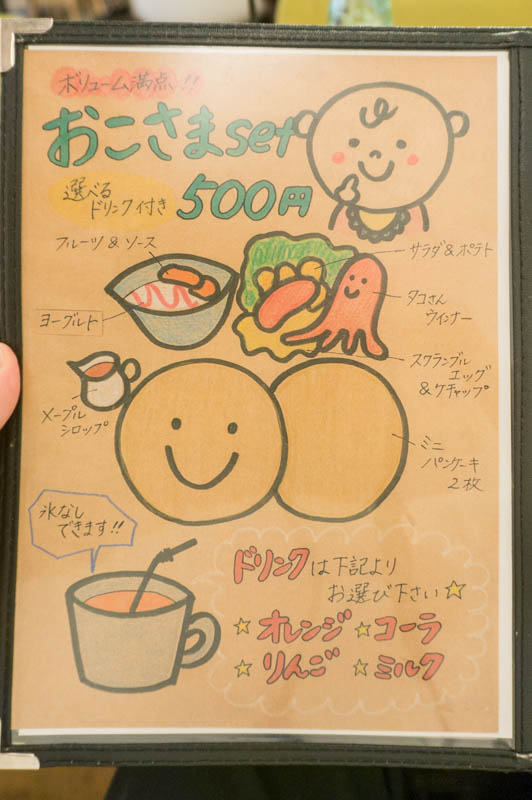 ボリューム満点!!
おこさまset
選べる
ドリンク付き
500円
フルーツ&ソース
サラダ&ポテト
ヨーグルト
タコさん
ウインナー
スクランブル
エッグ
&ケチャップ
メープル
シロップ
ミニ
パンケーキ
2枚
氷なし
できます!!
ドリンクは下記より
お選び下さい☆
☆オレンジ ☆コーラ
☆りんご ☆ミルク